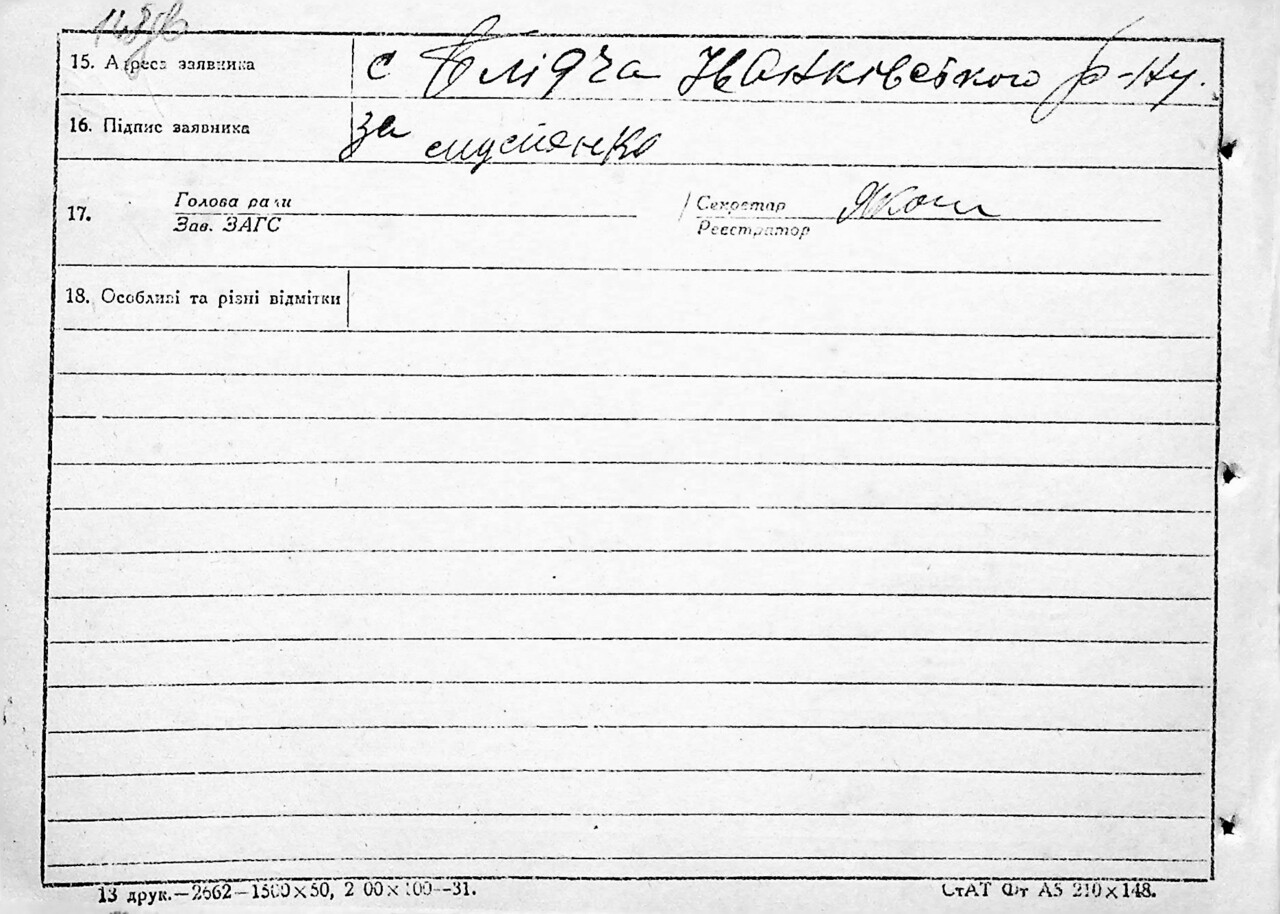 15. Адреса заявника с Блідча Іванківського р-ну.
16. Підпис заявника за
17. Голова ради Секретар
Зав. ЗАГС Реєстратор
18. Особливі та різні відмітки
13 друк.—2662—1500×50, 2 00×100—31. СтАТ Фт А5 210×148.